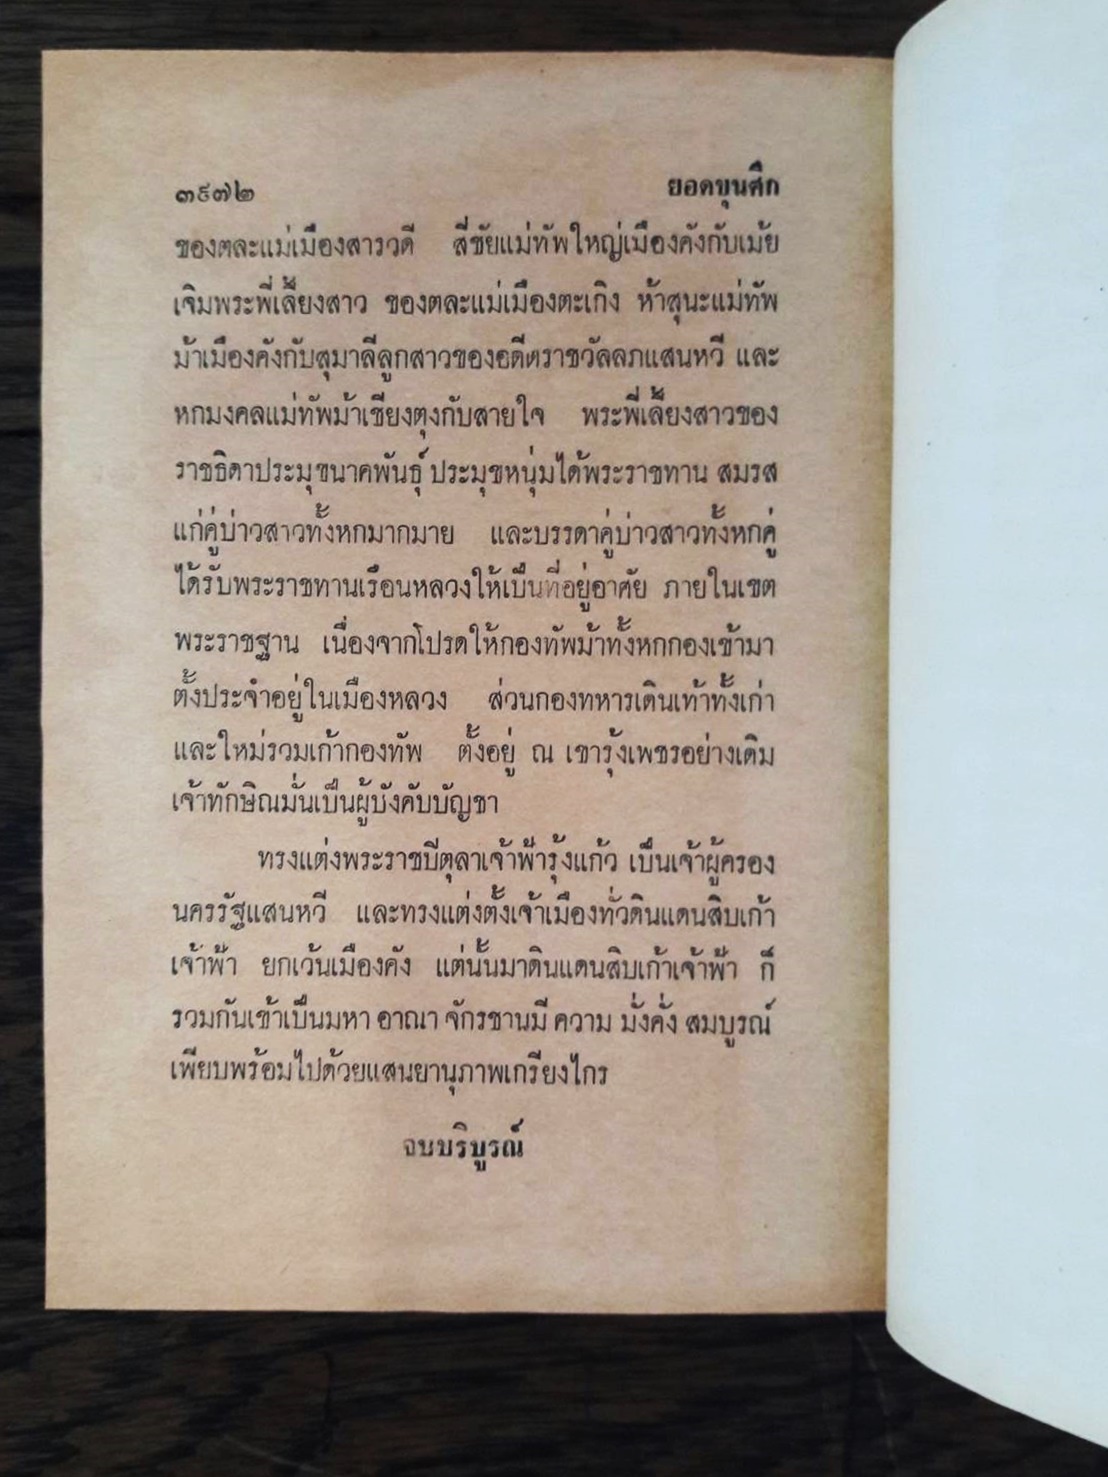 ๓๙๗๒ ยอดขุนศึก
ของตละแม่เมืองสารวดี สี่ชัยแม่ทัพใหญ่เมืองคังกับเม้ย
เจิมพระพี่เลี้ยงสาว ของตละแม่เมืองตะเกิง ห้าสุนะแม่ทัพ
ม้าเมืองคังกับสุมาลีลูกสาวของอดีตราชวัลลภแสนหวี และ
หกมงคลแม่ทัพม้าเชียงตุงกับสายใจ พระพี่เลี้ยงสาวของ
ราชธิดาประมุขนาคพันธุ์ ประมุขหนุ่มได้พระราชทาน สมรส
แก่คู่บ่าวสาวทั้งหกมากมาย และบรรดาคู่บ่าวสาวทั้งหกคู่
ได้รับพระราชทานเรือนหลวงให้เป็นที่อยู่อาศัย ภายในเขต
พระราชฐาน เนื่องจากโปรดให้กองทัพม้าทั้งหกกองเข้ามา
ตั้งประจำอยู่ในเมืองหลวง ส่วนกองทหารเดินเท้าทั้งเก่า
และใหม่รวมเก้ากองทัพ ตั้งอยู่ ณ เขารุ้งเพชรอย่างเดิม
เจ้าทักษิณมั่นเป็นผู้บังคับบัญชา
ทรงแต่งพระราชบีตุลาเจ้าฟ้ารุ้งแก้ว เป็นเจ้าผู้ครอง
นครรัฐแสนหวี และทรงแต่งตั้งเจ้าเมืองทั่วดินแดนสิบเก้า
เจ้าฟ้า ยกเว้นเมืองคัง แต่นั้นมาดินแดนสิบเก้าเจ้าฟ้า ก็
รวมกันเข้าเป็นมหา อาณา จักรชานมี ความ มั่งคั่ง สมบูรณ์
เพียบพร้อมไปด้วยแสนยานุภาพเกรียงไกร
จบบริบูรณ์